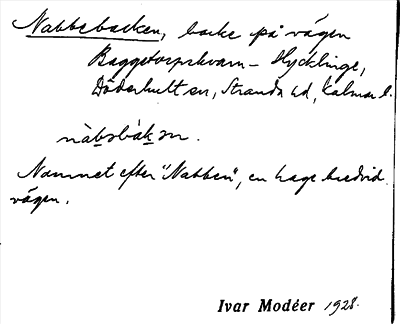 Nabbebacken, backe på vägen
Baggetorpskvarn – Hycklinge,
Döderhult sn, Stranda hd, Kalmar l.
nàbəbàkən.
Namnet efter "Nabben", en hage bredvid
vägen.
Ivar Modéer 1928.